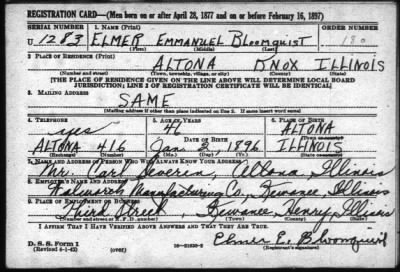 REGISTRATION CARD—(Men born on or after April 28, 1877 and on or before February 16, 1897)
SERIAL NUMBER 1. NAME (Print) ORDER NUMBER
U 1283 ELMER EMMANUEL BLOOMQUIST
(First) (Middle) (Last)
2. PLACE OF RESIDENCE (Print)
ALTONA KNOX ILLINOIS
(Number and street) (Town, township, village, or city) (County) (State)
[THE PLACE OF RESIDENCE GIVEN ON THE LINE ABOVE WILL DETERMINE LOCAL BOARD
JURISDICTION; LINE 2 OF REGISTRATION CERTIFICATE WILL BE IDENTICAL]
3. MAILING ADDRESS
SAME
[Mailing address if other than place indicated on line 2. If same insert word same]
4. TELEPHONE 5. AGE IN YEARS 6. PLACE OF BIRTH
yes 46 ALTONA
DATE OF BIRTH (Town or county)
ALTONA 416 Jan 2, 1896 ILLINOIS
(Exchange) (Number) (Mo.) (Day) (Yr.) (State or country)
7. NAME AND ADDRESS OF PERSON WHO WILL ALWAYS KNOW YOUR ADDRESS
Mr. Carl Severin, Altona, Illinois
8. EMPLOYER'S NAME AND ADDRESS
Walworth Manufacturing Co., Kewanee, Illinois
9. PLACE OF EMPLOYMENT OR BUSINESS
Third Street, Kewanee, Henry, Illinois
(Number and street or R. F. D. number) (Town) (County) (State)
I AFFIRM THAT I HAVE VERIFIED ABOVE ANSWERS AND THAT THEY ARE TRUE.
D. S. S. Form 1
(Revised 4-1-42) (over) 16—21630-2 Elmer E. Bloomquist